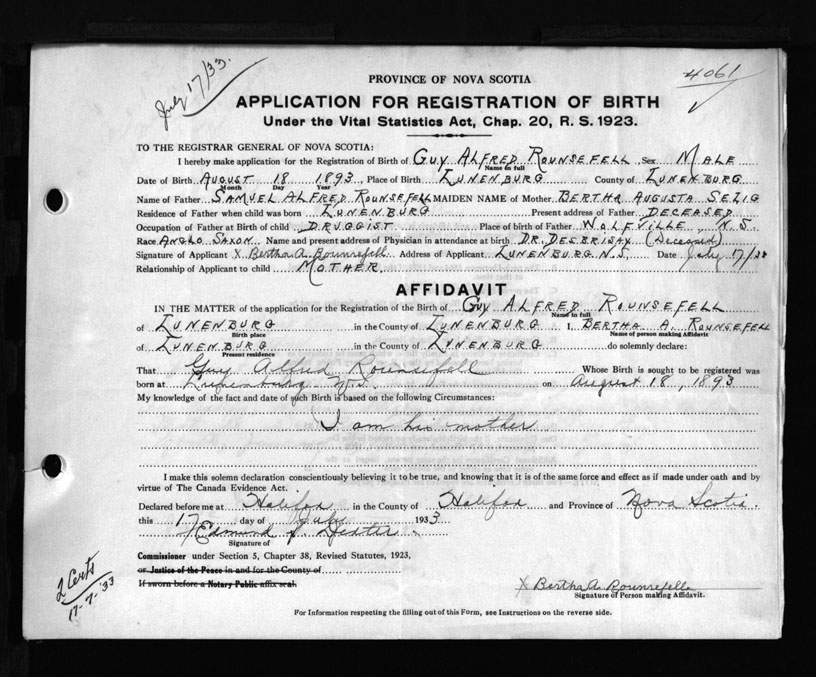 July 17/33.
4061
PROVINCE OF NOVA SCOTIA
APPLICATION FOR REGISTRATION OF BIRTH
Under the Vital Statistics Act, Chap. 20, R. S. 1923.
TO THE REGISTRAR GENERAL OF NOVA SCOTIA:
I hereby make application for the Registration of Birth of GUY ALFRED ROUNSEFELL Sex MALE
Name in full
Date of Birth AUGUST 18 1893, Place of Birth LUNENBURG County of LUNENBURG
Month Day Year
Name of Father SAMUEL ALFRED ROUNSEFELL MAIDEN NAME of Mother BERTHA AUGUSTA SELIG
Residence of Father when child was born LUNENBURG Present address of Father DECEASED
Occupation of Father at Birth of child DRUGGIST Place of birth of Father WOLFVILLE, N.S.
Race ANGLO SAXON Name and present address of Physician in attendance at birth DR. DESBRISAY (Deceased)
Signature of Applicant X Bertha A. Rounsefell Address of Applicant LUNENBURG N.S. Date July 17/
Relationship of Applicant to child MOTHER
AFFIDAVIT
IN THE MATTER of the application for the Registration of the Birth of GUY ALFRED ROUNSEFELL
Name in full
of LUNENBURG in the County of LUNENBURG I, BERTHA A. ROUNSEFELL
Birth place Name of person making Affidavit
of LUNENBURG in the County of LUNENBURG do solemnly declare:
Present residence
That Guy Alfred Rounsefell Whose Birth is sought to be registered was
born at Lunenburg N.S. on August 18, 1893
My knowledge of the fact and date of such Birth is based on the following Circumstances:
I am his mother
I make this solemn declaration conscientiously believing it to be true, and knowing that it is of the same force and effect as if made under oath and by
virtue of The Canada Evidence Act.
Declared before me at Halifax in the County of Halifax and Province of Nova Scotia.
this 17 day of July 1933
Edmund
Signature of
Commissioner under Section 5, Chapter 38, Revised Statutes, 1923,
or Justice of the Peace in and for the County of
If sworn before a Notary Public affix seal.
2 Certs
17-7-'33
X Bertha A. Rounsefell
Signature of Person making Affidavit.
For Information respecting the filling out of this Form, see Instructions on the reverse side.